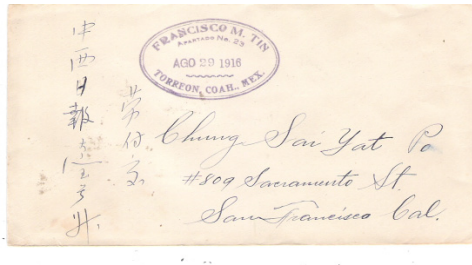 FRANCISCO M. TIN
APARTADO No. 23
AGO 29 1916
TORREON, COAH., MEX.
中西日報
Chung Sai Yat Po
#809 Sacramento St
San Francisco Cal.